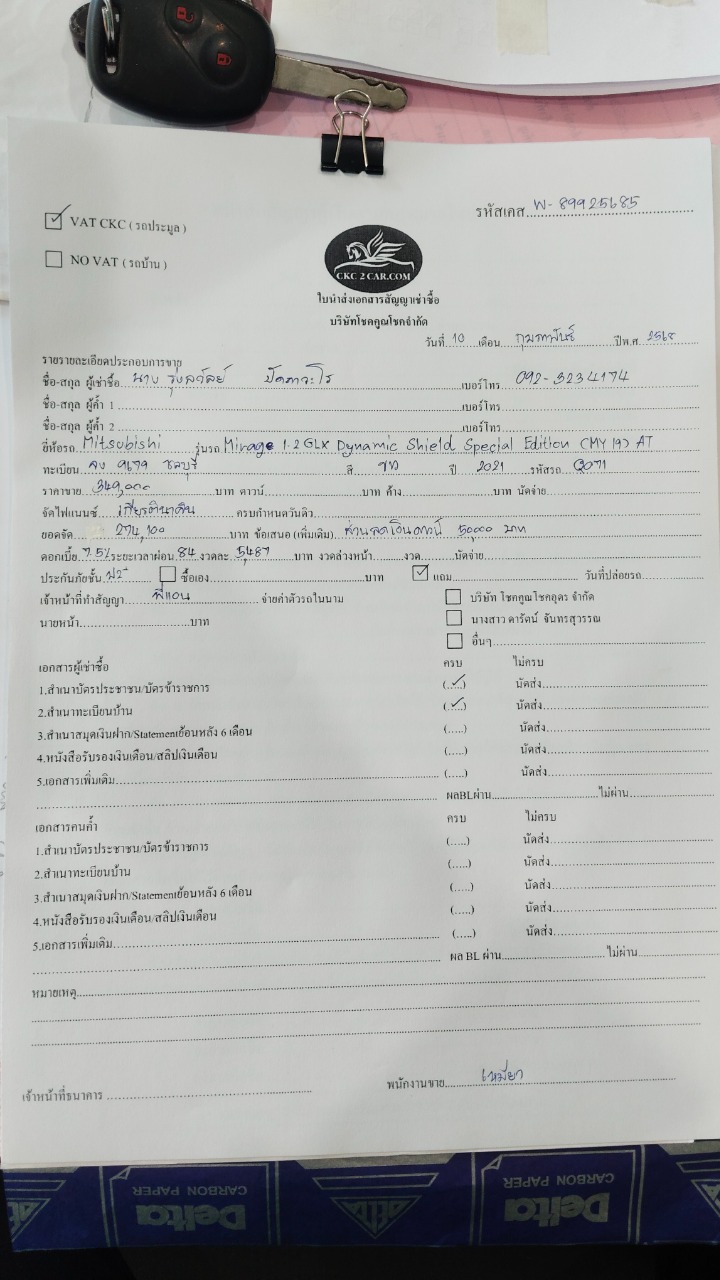 รหัสเคส W-89925685
VAT CKC ( รถประมูล )
NO VAT ( รถบ้าน )
CKC 2 CAR.COM
ใบนำส่งเอกสารสัญญาเช่าซื้อ
บริษัทโชคคูณโชคจำกัด
วันที่ 10 เดือน กุมภาพันธ์ ปีพ.ศ. 2568
รายรายละเอียดประกอบการขาย
ชื่อ-สกุล ผู้เช่าซื้อ นาง รุ่งลาวัลย์ เบอร์โทร 092-3234174
ชื่อ-สกุล ผู้ค้ำ 1 เบอร์โทร
ชื่อ-สกุล ผู้ค้ำ 2 เบอร์โทร
ยี่ห้อรถ Mitsubishi รุ่นรถ Mirage 1.2 GLX Dynamic Shield Special Edition (MY 19) AT
ทะเบียน 9679 ชลบุรี สี ขาว ปี 2021 รหัสรถ Q071
ราคาขาย 349,000 บาท ดาวน์ บาท ค้าง บาท นัดจ่าย
จัดไฟแนนซ์ เกียรตินาคิน ครบกำหนดวันดิว
ยอดจัด 274,100 บาท ข้อเสนอ (เพิ่มเติม) ส่วนลดเงินดาวน์ 50,000 บาท
ดอกเบี้ย 7.5% ระยะเวลาผ่อน 84 งวดละ 5,487 บาท งวดล่วงหน้า งวด นัดจ่าย
ประกันภัยชั้น ป2+ ซื้อเอง บาท แถม วันที่ปล่อยรถ
เจ้าหน้าที่ทำสัญญา พี่แอน จ่ายค่าตัวรถในนาม บริษัท โชคคูณโชคอุดร จำกัด
นายหน้า บาท นางสาว ดารัตน์ จันทรสุวรรณ
อื่นๆ
เอกสารผู้เช่าซื้อ ครบ ไม่ครบ
1.สำเนาบัตรประชาชน/บัตรข้าราชการ (.....) นัดส่ง
2.สำเนาทะเบียนบ้าน (.....) นัดส่ง
3.สำเนาสมุดเงินฝาก/Statementย้อนหลัง 6 เดือน (.....) นัดส่ง
4.หนังสือรับรองเงินเดือน/สลิปเงินเดือน (.....) นัดส่ง
5.เอกสารเพิ่มเติม (.....) นัดส่ง
ผลBLผ่าน ไม่ผ่าน
เอกสารคนค้ำ ครบ ไม่ครบ
1.สำเนาบัตรประชาชน/บัตรข้าราชการ (.....) นัดส่ง
2.สำเนาทะเบียนบ้าน (.....) นัดส่ง
3.สำเนาสมุดเงินฝาก/Statementย้อนหลัง 6 เดือน (.....) นัดส่ง
4.หนังสือรับรองเงินเดือน/สลิปเงินเดือน (.....) นัดส่ง
5.เอกสารเพิ่มเติม (.....) นัดส่ง
ผล BL ผ่าน ไม่ผ่าน
หมายเหตุ
เจ้าหน้าที่ธนาคาร พนักงานขาย เหมียว
Delta CARBON PAPER Delta CARBON PAPER